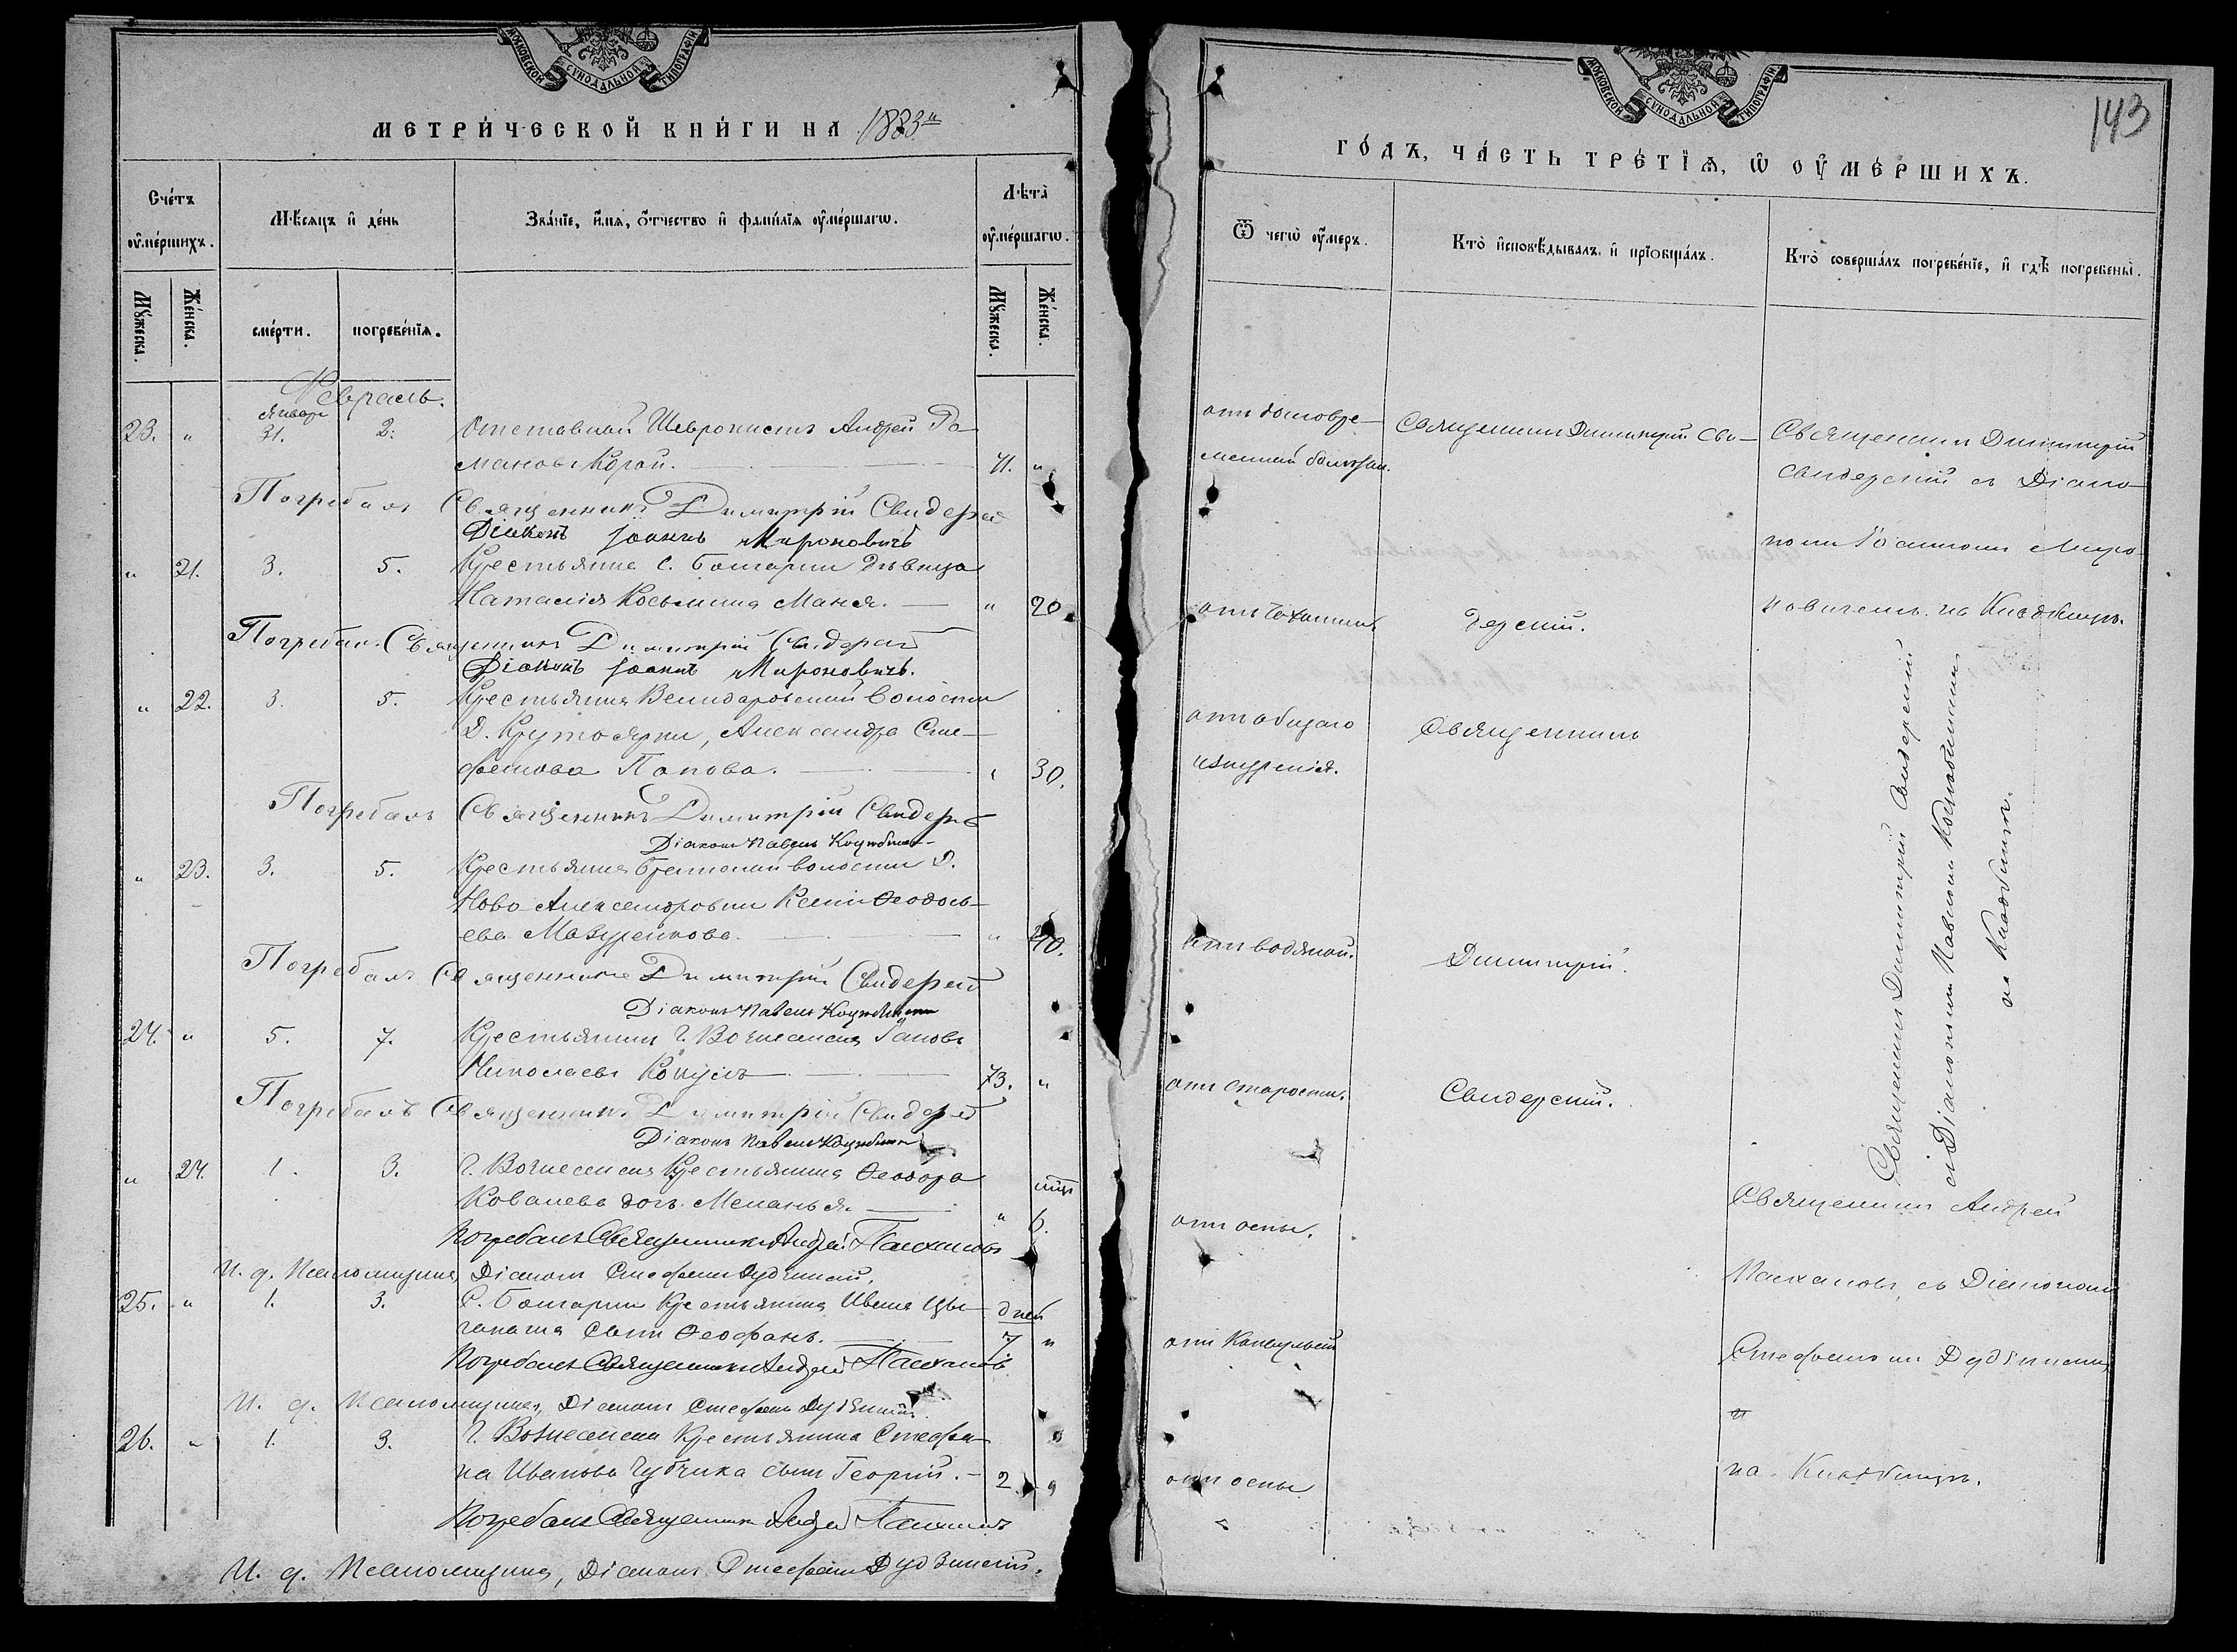 МОСКОВСКОЙ СѴНОДАЛЬНОЙ ТИПОГРАФІИ
МЕТРИ́ЧЕСКОЙ КНИ́ГИ НА 1883й
Сче́тъ оу҆ме́ршихъ.
Мѣ́сяцъ и҆ де́нь
Зва́нїе, и҆́мя, ѻ҆́тчество и҆ фами́лїя оу҆ме́ршагѡ.
Лѣ́та оу҆ме́ршагѡ.
Мꙋ́жеска.
Же́нска.
сме́рти.
погребе́нїя.
Мꙋ́жеска.
Же́нска.
Февраль.
Январь
23. " 31. 2. Отставной Шевронистъ Андрей Ро-
мановъ Корой. 71. "
Погребалъ Священникъ Димитрій Свидерскій
Діаконъ Іоаннъ Мироновичъ
" 21. 3. 5. Крестьянка С. Болгарки дѣвица
Наталія Косьмина Маняк. " 20
Погребалъ Священникъ Димитрій Свидерскій
Діаконъ Іоаннъ Мироновичъ.
" 22. 3. 5. Крестьянка Велидаровской волости
Д. Крутоярки, Александра Сте-
фанова Попова. " 30.
Погребалъ Священникъ Димитрій Свидерскій
Діаконъ Павелъ Коцюбинскій
" 23. 3. 5. Крестьянка Братской волости Д.
Ново Александровки Ксенія Ѳеодось-
ева Мазуренкова. " 40.
Погребалъ Священникъ Димитрій Свидерскій
Діаконъ Павелъ Коцюбинскій
24. " 5. 7. Крестьянинъ Г. Вознесенска Іаковъ
Николаевъ Коцулъ 73. "
Погребалъ Священникъ Димитрій Свидерскій
Діаконъ Павелъ Коцюбинскій
" 24. 1. 3. Г. Вознесенска Крестьянина Ѳеодора
Ковалева дочь Меланья. " 6.
Погребалъ Священникъ Андрей Палхановъ
И. д. Псаломщика, Діаконъ Стефанъ Дудзинскій.
25. " 1. 3. С. Болгарки Крестьянина Ивана Цы- дней
ганаша сынъ Ѳеофанъ. 7. "
Погребалъ Священникъ Андрей Палхановъ
И. д. Псаломщика, Діаконъ Стефанъ Дудзинскій.
26. " 1. 3. Г. Вознесенска Крестьянина Стефа-
на Иванова Чубчика сынъ Георгій. 2. "
Погребалъ Священникъ Андрей Палхановъ
И. д. Псаломщика, Діаконъ Стефанъ Дудзинскій.
МОСКОВСКОЙ СѴНОДАЛЬНОЙ ТИПОГРАФІИ
143
ГО́ДЪ, ЧА́СТЬ ТРЕ́ТЇѦ, Ѡ҆ ОУ҆МЕ́РШИХЪ.
Ѿ чегѡ̀ оу҆́меръ.
Кто̀ и҆сповѣ́дывалъ и҆ прїобща́лъ.
Кто̀ соверша́лъ погребе́нїе, и҆ гдѣ̀ погребены̀.
отъ долговре-
менной болѣзни.
Священникъ Димитрій Сви-
дерскій.
Священникъ Димитрій
Свидерскій съ Діако-
номъ Іоанномъ Миро-
новичемъ на Кладбищѣ.
отъ чахотки.
отъ общаго
изнуренія.
Священникъ
отъ водяной.
Димитрій.
отъ старости.
Свидерскій.
Священникъ Димитрій Свидерскій
съ Діакономъ Павломъ Коцюбинскимъ
на Кладбищѣ.
отъ оспы.
Священникъ Андрей
Палхановъ, съ Діакономъ
Стефаномъ Дудзинскимъ
на Кладбищѣ.
отъ Конвульсій
отъ оспы